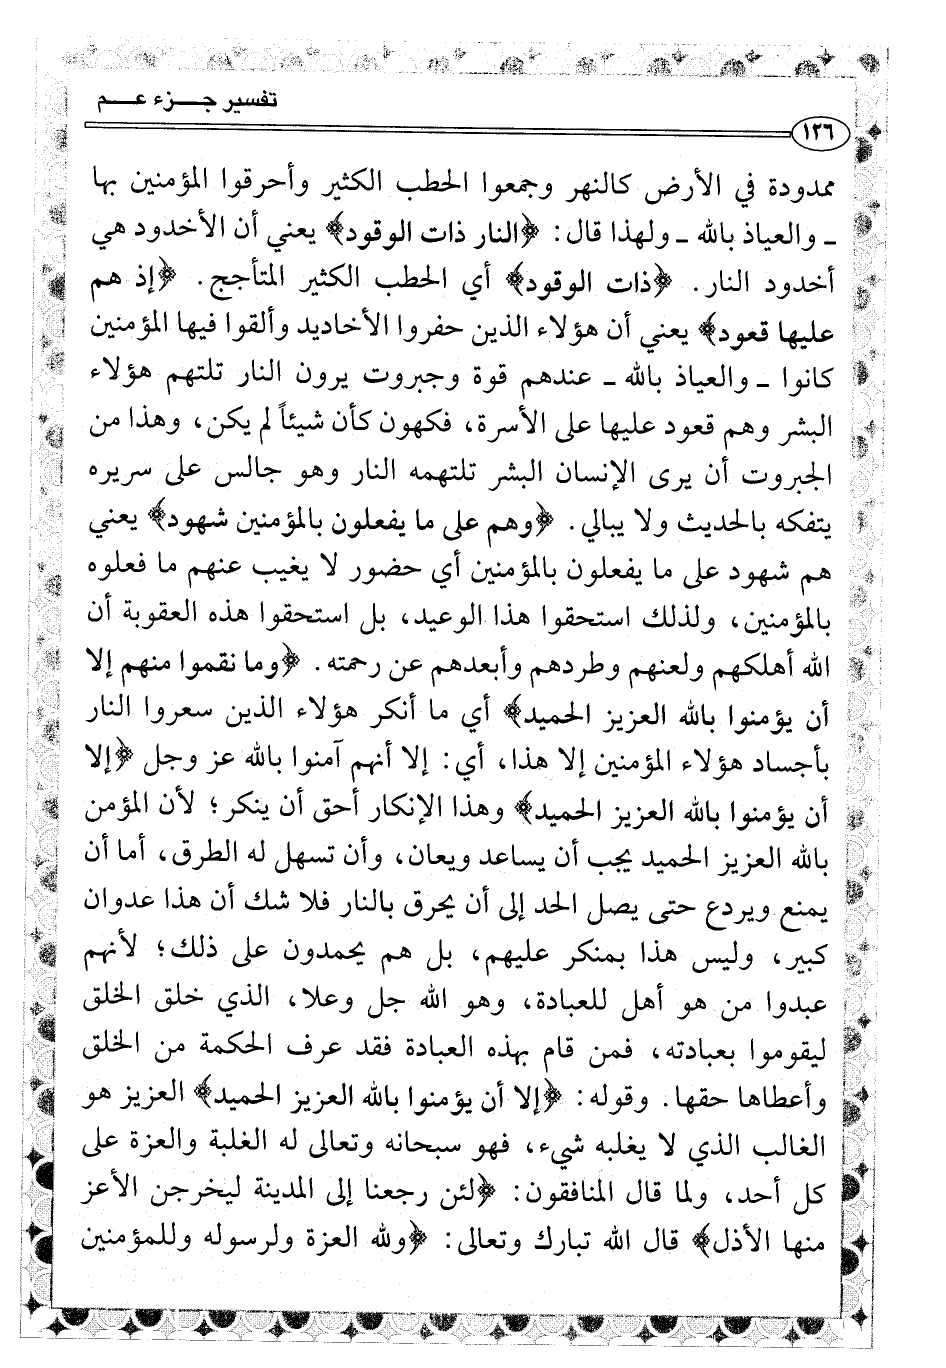 تفسير جـــزء عـــم
١٢٦
ممدودة في الأرض كالنهر وجمعوا الحطب الكثير وأحرقوا المؤمنين بها
ـ والعياذ بالله ـ ولهذا قال: ﴿النار ذات الوقود﴾ يعني أن الأخدود هي
أخدود النار. ﴿ذات الوقود﴾ أي الحطب الكثير المتأجج. ﴿إذ هم
عليها قعود﴾ يعني أن هؤلاء الذين حفروا الأخاديد وألقوا فيها المؤمنين
كانوا ـ والعياذ بالله ـ عندهم قوة وجبروت يرون النار تلتهم هؤلاء
البشر وهم قعود عليها على الأسرة، فكهون كأن شيئاً لم يكن، وهذا من
الجبروت أن يرى الإنسان البشر تلتهمه النار وهو جالس على سريره
يتفكه بالحديث ولا يبالي. ﴿وهم على ما يفعلون بالمؤمنين شهود﴾ يعني
هم شهود على ما يفعلون بالمؤمنين أي حضور لا يغيب عنهم ما فعلوه
بالمؤمنين، ولذلك استحقوا هذا الوعيد، بل استحقوا هذه العقوبة أن
الله أهلكهم ولعنهم وطردهم وأبعدهم عن رحمته. ﴿وما نقموا منهم إلا
أن يؤمنوا بالله العزيز الحميد﴾ أي ما أنكر هؤلاء الذين سعروا النار
بأجساد هؤلاء المؤمنين إلا هذا، أي: إلا أنهم آمنوا بالله عز وجل ﴿إلا
أن يؤمنوا بالله العزيز الحميد﴾ وهذا الإنكار أحق أن ينكر؛ لأن المؤمن
بالله العزيز الحميد يجب أن يساعد ويعان، وأن تسهل له الطرق، أما أن
يمنع ويردع حتى يصل الحد إلى أن يحرق بالنار فلا شك أن هذا عدوان
كبير، وليس هذا بمنكر عليهم، بل هم يحمدون على ذلك؛ لأنهم
عبدوا من هو أهل للعبادة، وهو الله جل وعلا، الذي خلق الخلق
ليقوموا بعبادته، فمن قام بهذه العبادة فقد عرف الحكمة من الخلق
وأعطاها حقها. وقوله: ﴿إلا أن يؤمنوا بالله العزيز الحميد﴾ العزيز هو
الغالب الذي لا يغلبه شيء، فهو سبحانه وتعالى له الغلبة والعزة على
كل أحد، ولما قال المنافقون: ﴿لئن رجعنا إلى المدينة ليخرجن الأعز
منها الأذل﴾ قال الله تبارك وتعالى: ﴿ولله العزة ولرسوله وللمؤمنين